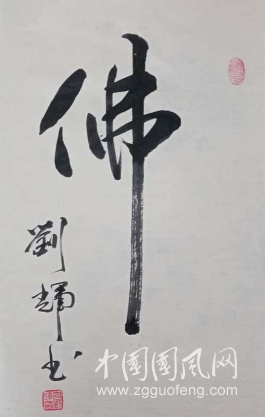 佛
劉輝书
中国国风网
www.zgguofeng.com